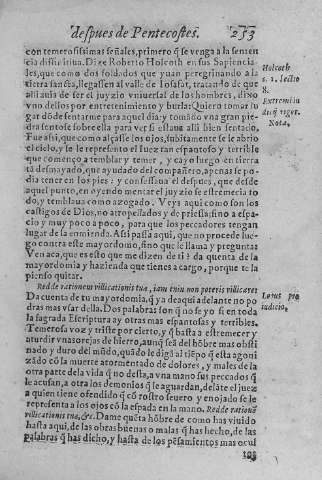 despues de Pentecostes. 253
con temerosissimas señales, primero q̃ se venga a la senten
cia difinitiua. Dize Roberto Holcoth en sus Sapiencia
les, que como dos soldados que yuan peregrinando a la
tierra sancta, llegassen al valle de Iosafat, tratando de que
alli auia de ser el juyzio vniuersal de los hombres, dixo
vno dellos por entretenimiento y burla: Quiero tomar lu
gar dõde sentarme para aquel dia; y tomãdo vna gran pie
dra sentose sobre ella para ver si estaua alli bien sentado,
Fue assi que, como alçasse los ojos, subitamente se le abrio
el cielo, y se le represento el Iuez tan espantoso y terrible
que començo a temblar y temer, y cayo luego en tierra
tã desmayado, que ayudado del compañero, apenas se po
dia tener en los pies: y confessaua el despues, que desde
aquel punto, en oyendo mentar el juyzio se estremecia to
do, y temblaua como azogado. Veys aqui como son los
castigos de Dios, no atropellados y de priessa, sino a espa-
cio y muy poco a poco, para que los peccadores tengan
lugar de la enmienda. Assi passa aqui, que no procede lue-
go contra este mayordomo, sino que le llama y pregunta:
Ven aca, que es esto que me dizen de ti? da quenta de la
mayordomia y hazienda que tienes a cargo, porque te la
pienso quitar.
Redde rationem villicationis tuæ, iam enim non poteris villicare
Da cuenta de tu mayordomia, q̃ ya de aqui adelante no po
dras mas vsar della. Dos palabras son q̃ no se yo si en toda
la sagrada Escriptura ay otras mas espantosas y terribles.
Temerosa voz y triste por cierto, y q̃ basta a estremecer y
aturdir vnas orejas de hierro, aunq̃ sea del hõbre mas obsti
nado y duro del mũdo, quãdo le digã al tiẽpo q̃ esta agoni
zãdo cõ la muerte atormentado de dolores, y males de la
otra parte de la vida q̃ no dessa, a vna mano sus peccados q̃
le acusan, a otra los demonios q̃ le aguardan, delãte el juez
a quien tiene ofendido q̃ cõ rostro seuero y enojado se le
representa a los ojos cõ la espada en la mano. Redde rationẽ
villicationis tuæ, &c. Dame quẽta hõbre de como has viuido
hasta aqui, de las obras buenas o malas q̃ has hecho, de las
palabras q̃ has dicho, y hasta de los pẽsamientos mas ocul
Holcoth
s. 1. lectio
8.
Extremũ iu
dicij rigor.
Nota.
Locus pro
iudicio.